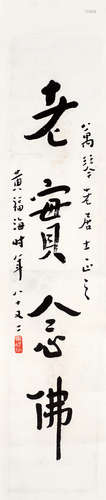 萬發老居士正之
老實念佛
黃福海時年八十又二